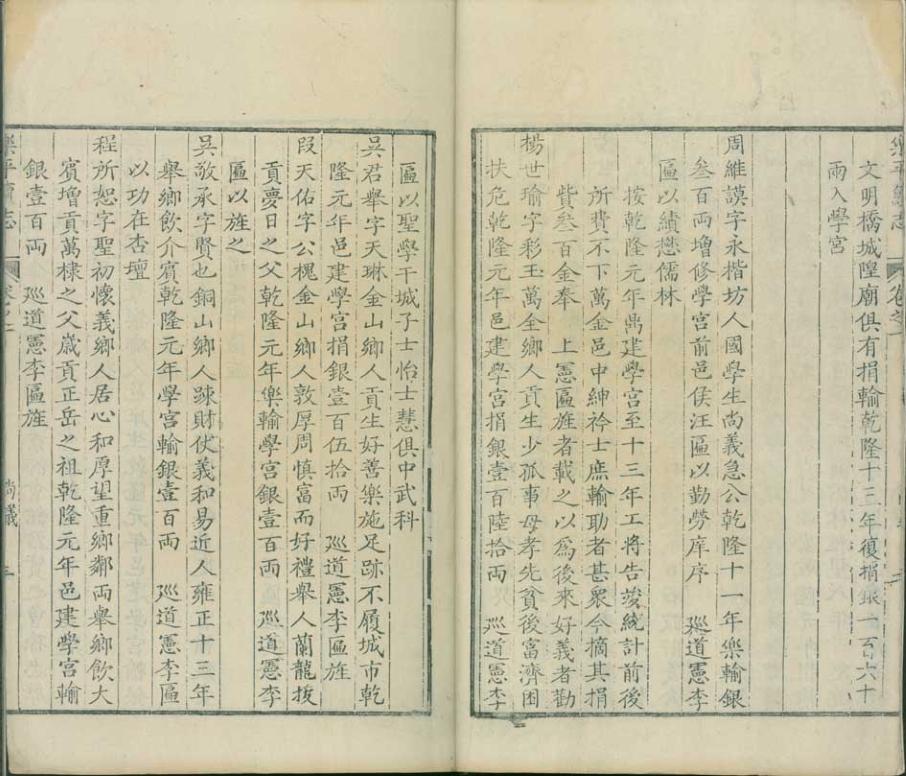 文明橋城隍廟俱有捐輸乾隆十三年復捐銀一百六十
兩入學宮
周維謨字永楷坊人國學生尚義急公乾隆十一年樂輸銀
叁百兩增修學宮前邑侯汪匾以勤勞庠序　巡道憲李
匾以績懋儒林
按乾隆元年啇建學宮至十三年工將告竣統計前後
所費不下萬金邑中紳衿士庶輸助者甚衆今摘其捐
貲叁百金奉　上憲匾旌者載之以爲後來好義者勸
楊世瑜字彩玉萬全鄉人貢生少孤事母孝先貧後富濟困
扶危乾隆元年邑建學宮捐銀壹百陸拾兩　巡道憲李
匾以聖學干城子士怡士慧俱中武科
吳君舉字天琳金山鄉人貢生好善樂施足跡不履城市乾
隆元年邑建學宮捐銀壹百伍拾兩　巡道憲李匾旌
段天佑字公槐金山鄉人敦厚周慎富而好禮舉人蘭龍拔
貢夢日之父乾隆元年樂輸學宮銀壹百兩　巡道憲李
匾以旌之
吳敬承字賢也銅山鄉人踈財仗義和易近人雍正十三年
舉鄉飲介賓乾隆元年學宮輸銀壹百兩　巡道憲李匾
以功在杏壇
程所恕字聖初懷義鄉人居心和厚望重鄉鄰兩舉鄉飲大
賓增貢萬棣之父歲貢正岳之祖乾隆元年邑建學宮輸
銀壹百兩　巡道憲李匾旌